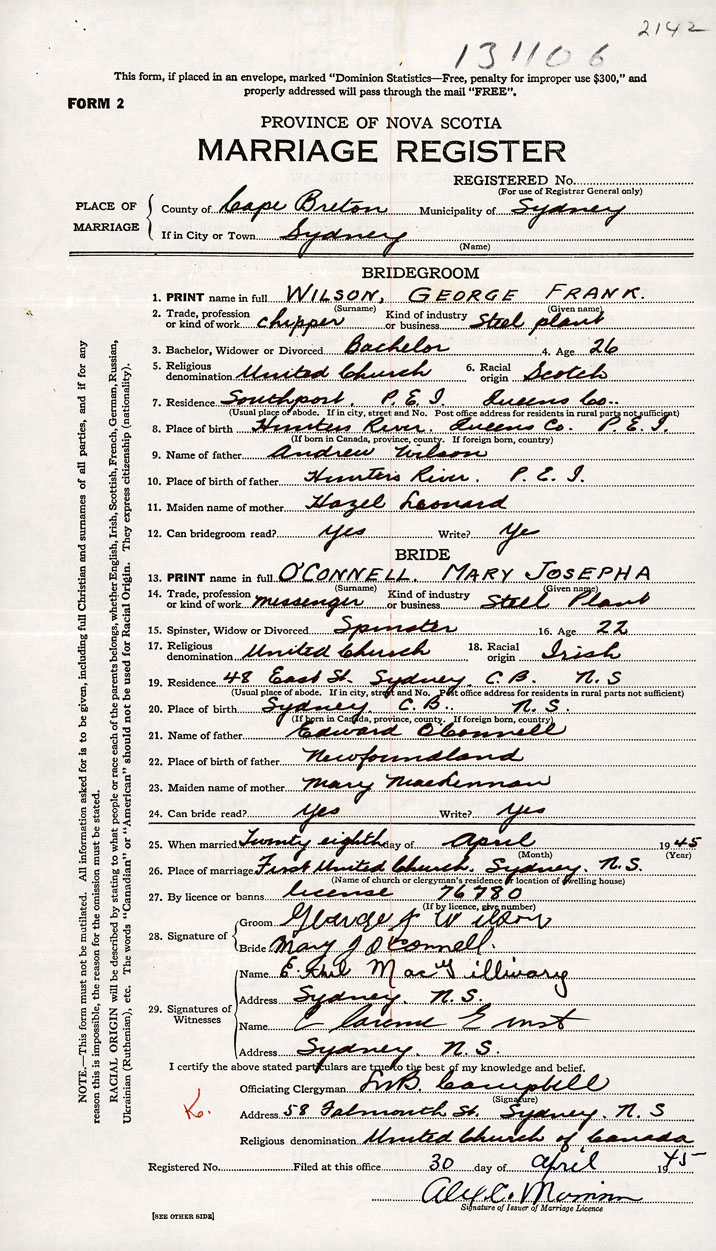 2142
131106
This form, if placed in an envelope, marked "Dominion Statistics—Free, penalty for improper use $300," and
properly addressed will pass through the mail "FREE".
FORM 2
PROVINCE OF NOVA SCOTIA
MARRIAGE REGISTER
REGISTERED No.
(For use of Registrar General only)
PLACE OF MARRIAGE
County of Cape Breton Municipality of Sydney
If in City or Town Sydney
(Name)
BRIDEGROOM
1. PRINT name in full WILSON, GEORGE FRANK.
(Surname) (Given name)
2. Trade, profession or kind of work chipper Kind of industry or business Steel plant
3. Bachelor, Widower or Divorced Bachelor 4. Age 26
5. Religious denomination United Church 6. Racial origin Scotch
7. Residence Southport. P.E.I. Queens Co..
(Usual place of abode. If in city, street and No. Post office address for residents in rural parts not sufficient)
8. Place of birth Hunters River. Queens Co. P.E.I.
(If born in Canada, province, county. If foreign born, country)
9. Name of father Andrew Wilson
10. Place of birth of father Hunters River. P.E.I.
11. Maiden name of mother Hazel Leonard
12. Can bridegroom read? yes Write? Yes
BRIDE
13. PRINT name in full O'CONNELL. MARY JOSEPHA
(Surname) (Given name)
14. Trade, profession or kind of work messenger Kind of industry or business Steel Plant
15. Spinster, Widow or Divorced Spinster 16. Age 22
17. Religious denomination United Church 18. Racial origin Irish
19. Residence 48 East St. Sydney. C.B. N.S
(Usual place of abode. If in city, street and No. Post office address for residents in rural parts not sufficient)
20. Place of birth Sydney C.B.. N.S.
(If born in Canada, province, county. If foreign born, country)
21. Name of father Edward O'Connell
22. Place of birth of father Newfoundland
23. Maiden name of mother Mary MacKennan
24. Can bride read? Yes Write? Yes
25. When married Twenty eighth day of April 1945
(Month) (Year)
26. Place of marriage First United Church. Sydney. N.S.
(Name of church or clergyman's residence or location of dwelling house)
27. By licence or banns license 76780
(If by licence, give number)
28. Signature of
Groom George F Wilson
Bride Mary J O'Connell.
29. Signatures of Witnesses
Name Ethel MacGillivary
Address Sydney. N.S.
Name Clarence Ernst
Address Sydney. N.S.
I certify the above stated particulars are true to the best of my knowledge and belief.
Officiating Clergyman Campbell
(Signature)
K.
Address 58 Falmouth St. Sydney. N.S
Religious denomination United Church of Canada
Registered No. Filed at this office 30 day of April 1945
Signature of Issuer of Marriage Licence
[SEE OTHER SIDE]
NOTE.—This form must not be mutilated. All information asked for is to be given, including full Christian and surnames of all parties, and if for any
reason this is impossible, the reason for the omission must be stated.
RACIAL ORIGIN will be described by stating to what people or race each of the parents belongs, whether English, Irish, Scottish, French, German, Russian,
Ukrainian (Ruthenian), etc. The words "Canadian" or "American" should not be used for Racial Origin. They express citizenship (nationality).